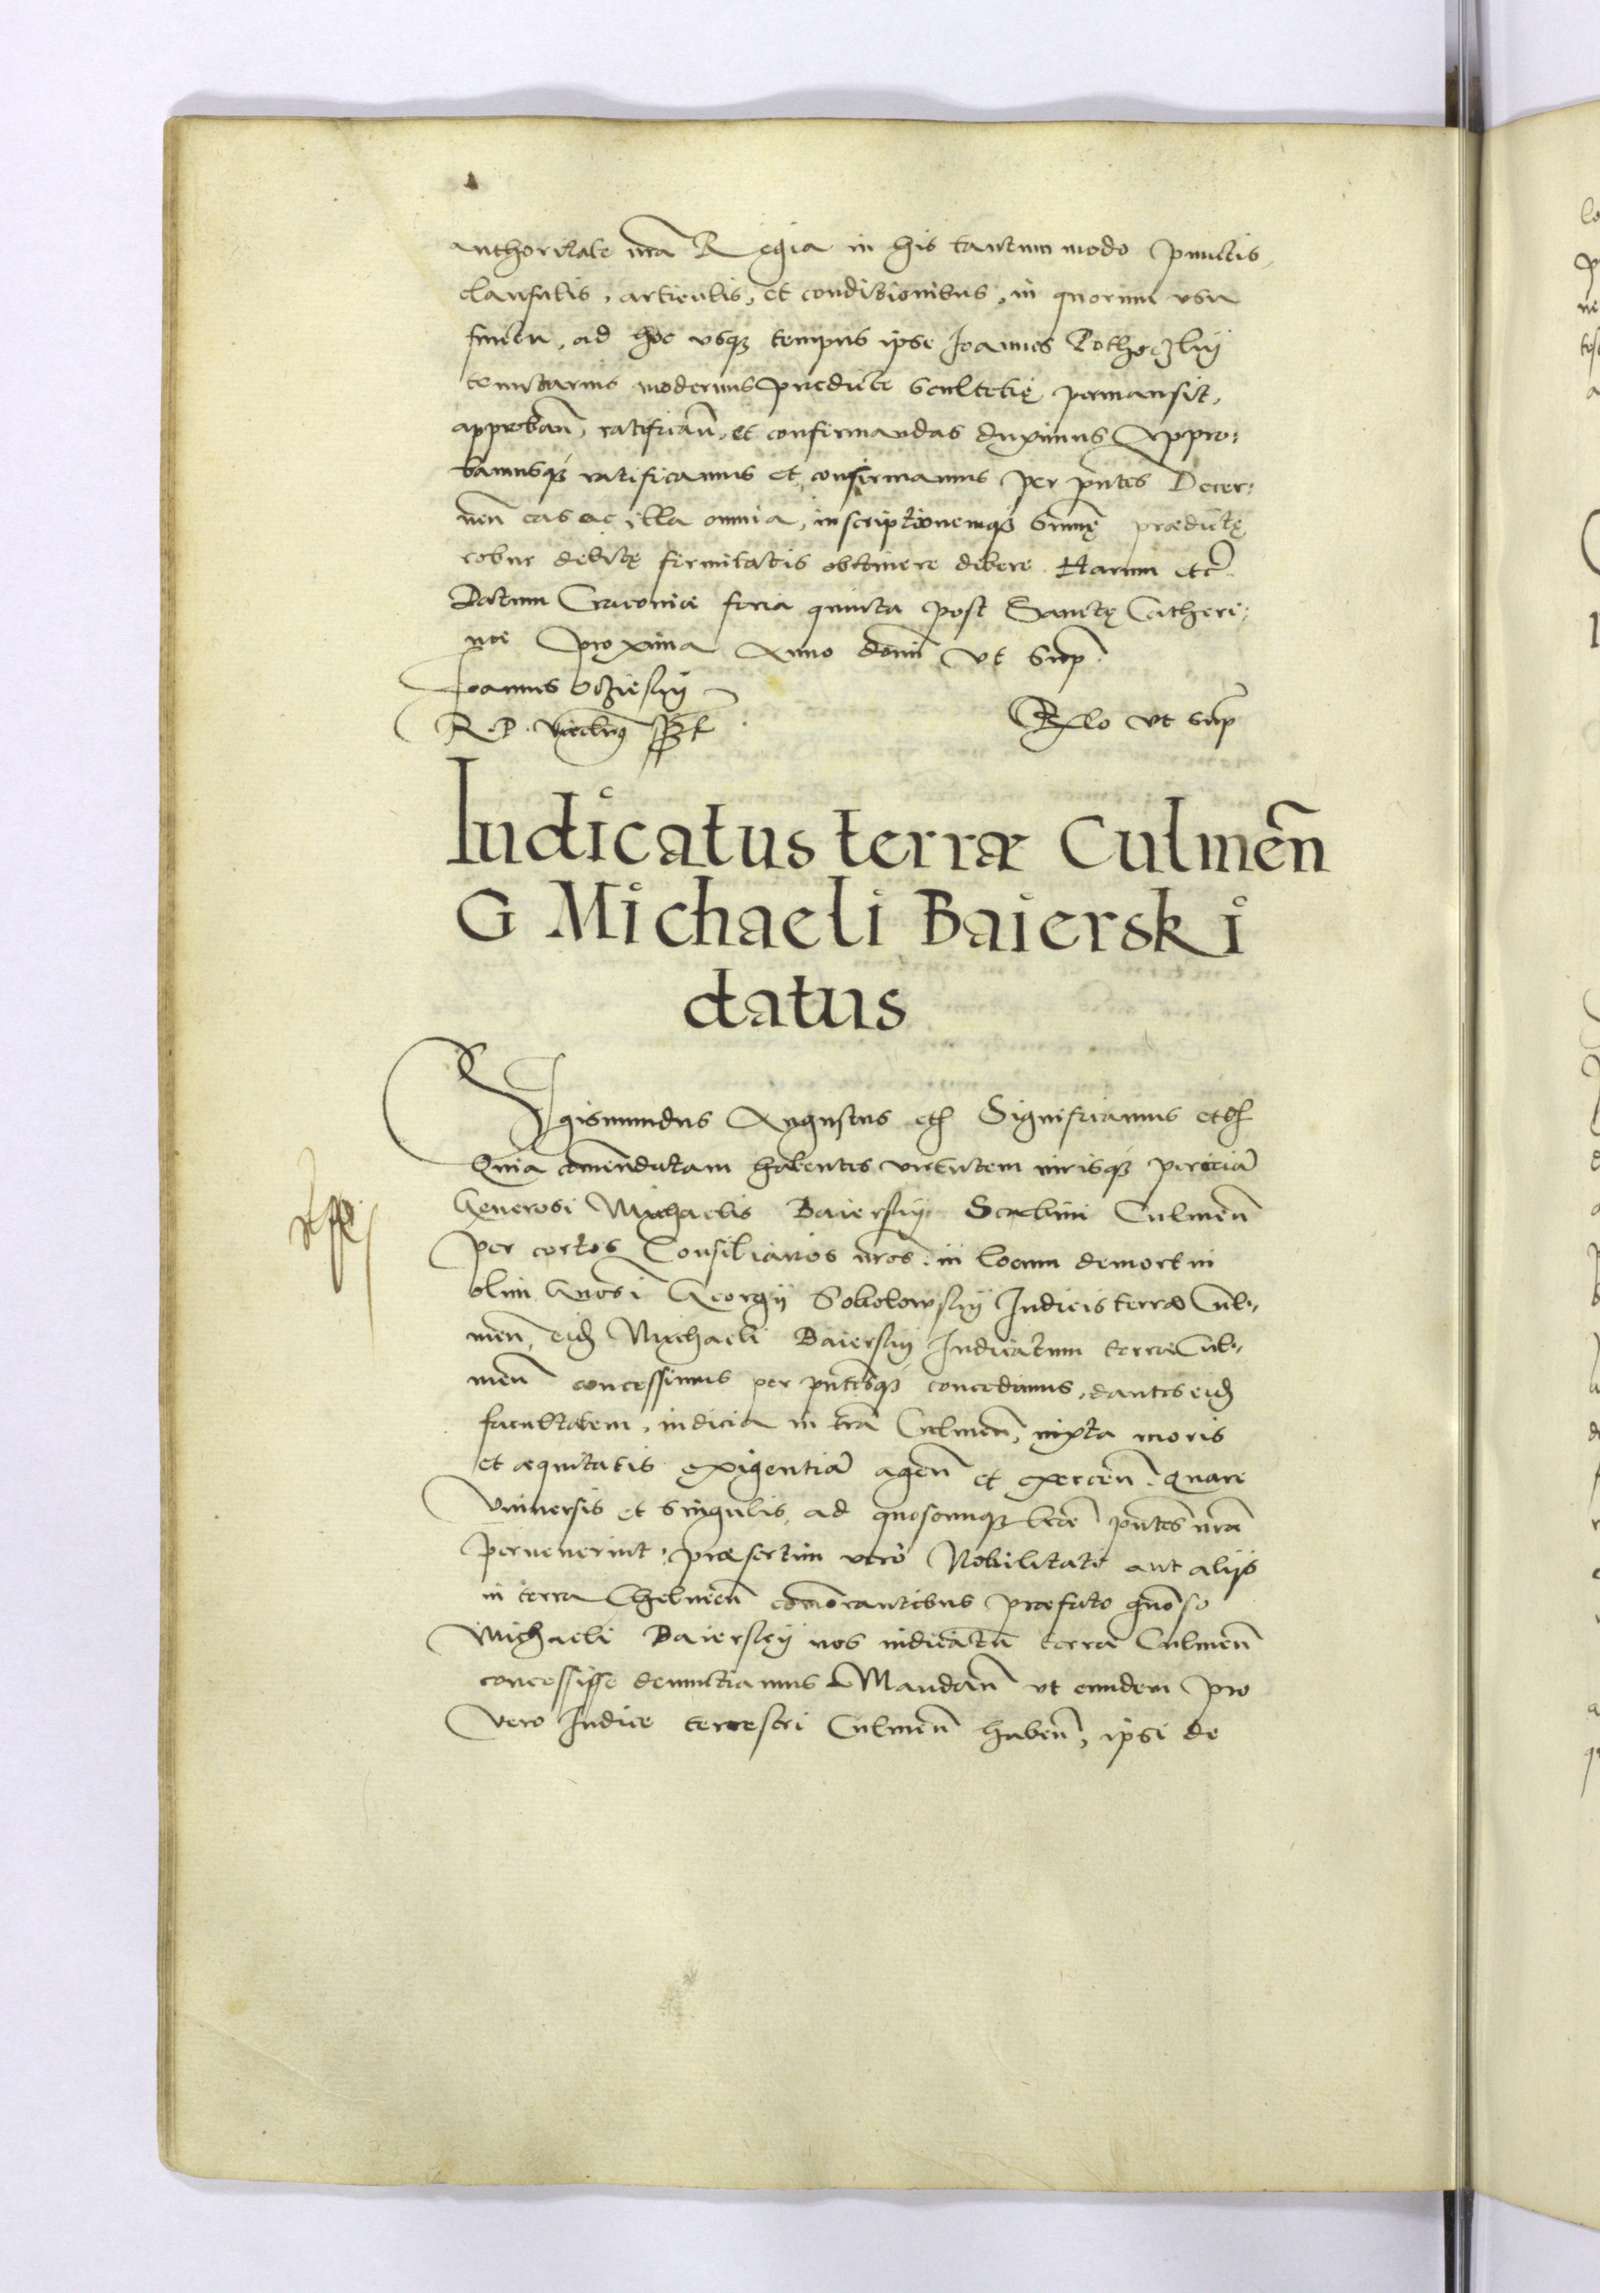 authoritate nrã Regia in his tantummodo punctis,
clausulis, articulis, et conditionibus, in quorum usu
fructu, ad hoc usq₃ tempus ipse Joannes
tenutarius modernus predicte scultetię permansit,
approbañ, ratificañ, et confirmandas duximus Appro:
bamusq₃ ratificamus et confirmamus per pñtes Decer:
neñ eas ac illa omnia, inscriptionemq₃ summę prædictę
robur debitę firmitatis obtinere debere. Harum etc̃.
Datum Cracoviæ feria quinta post Sanctę Catheri:
næ proxima Anno domĩ ut sup̃.
Joannes Oczieskij
R. P. Vicecan₉ sst
Relo ut sup̃
Iudicatus terræ Culmeñ
G Michaeli Baierski
datus
Sigismundus Augustus etc̃ Significamus etc̃
Quia comendatam habentes virtutem iurisq₃ periciã
Generosi Michaelis Baierskij Scabini Culmeñ
per certos Consiliarios nr̃os, in locum demortui
olim Gnõsi Georgij Sokolowskij Iudicis terræ Cul-
meñ, eid̃ Michaeli Baierskij Iudicatum terræ Cul-
meñ concessimus per pñtesq₃ concedimus, dantes eid̃
facultatem, iudicia in trã Culmeñ, iuxta moris
et æquitatis exigentiã ageñ et exerceñ. Quare
Universis et singulis, ad quoscunq₃ pñtes nrã
pervenerint, præsertim vero Nobilitati aut alijs
in terra Chelmeñ com̃orantibus præfato gnõso
Michaeli Baierskij nos iudicatũ terræ Culmeñ
concessisse denunctiamus Mandañ ut eundem pro
vero Iudice terrestri Culmeñ habeñ, ipsi de